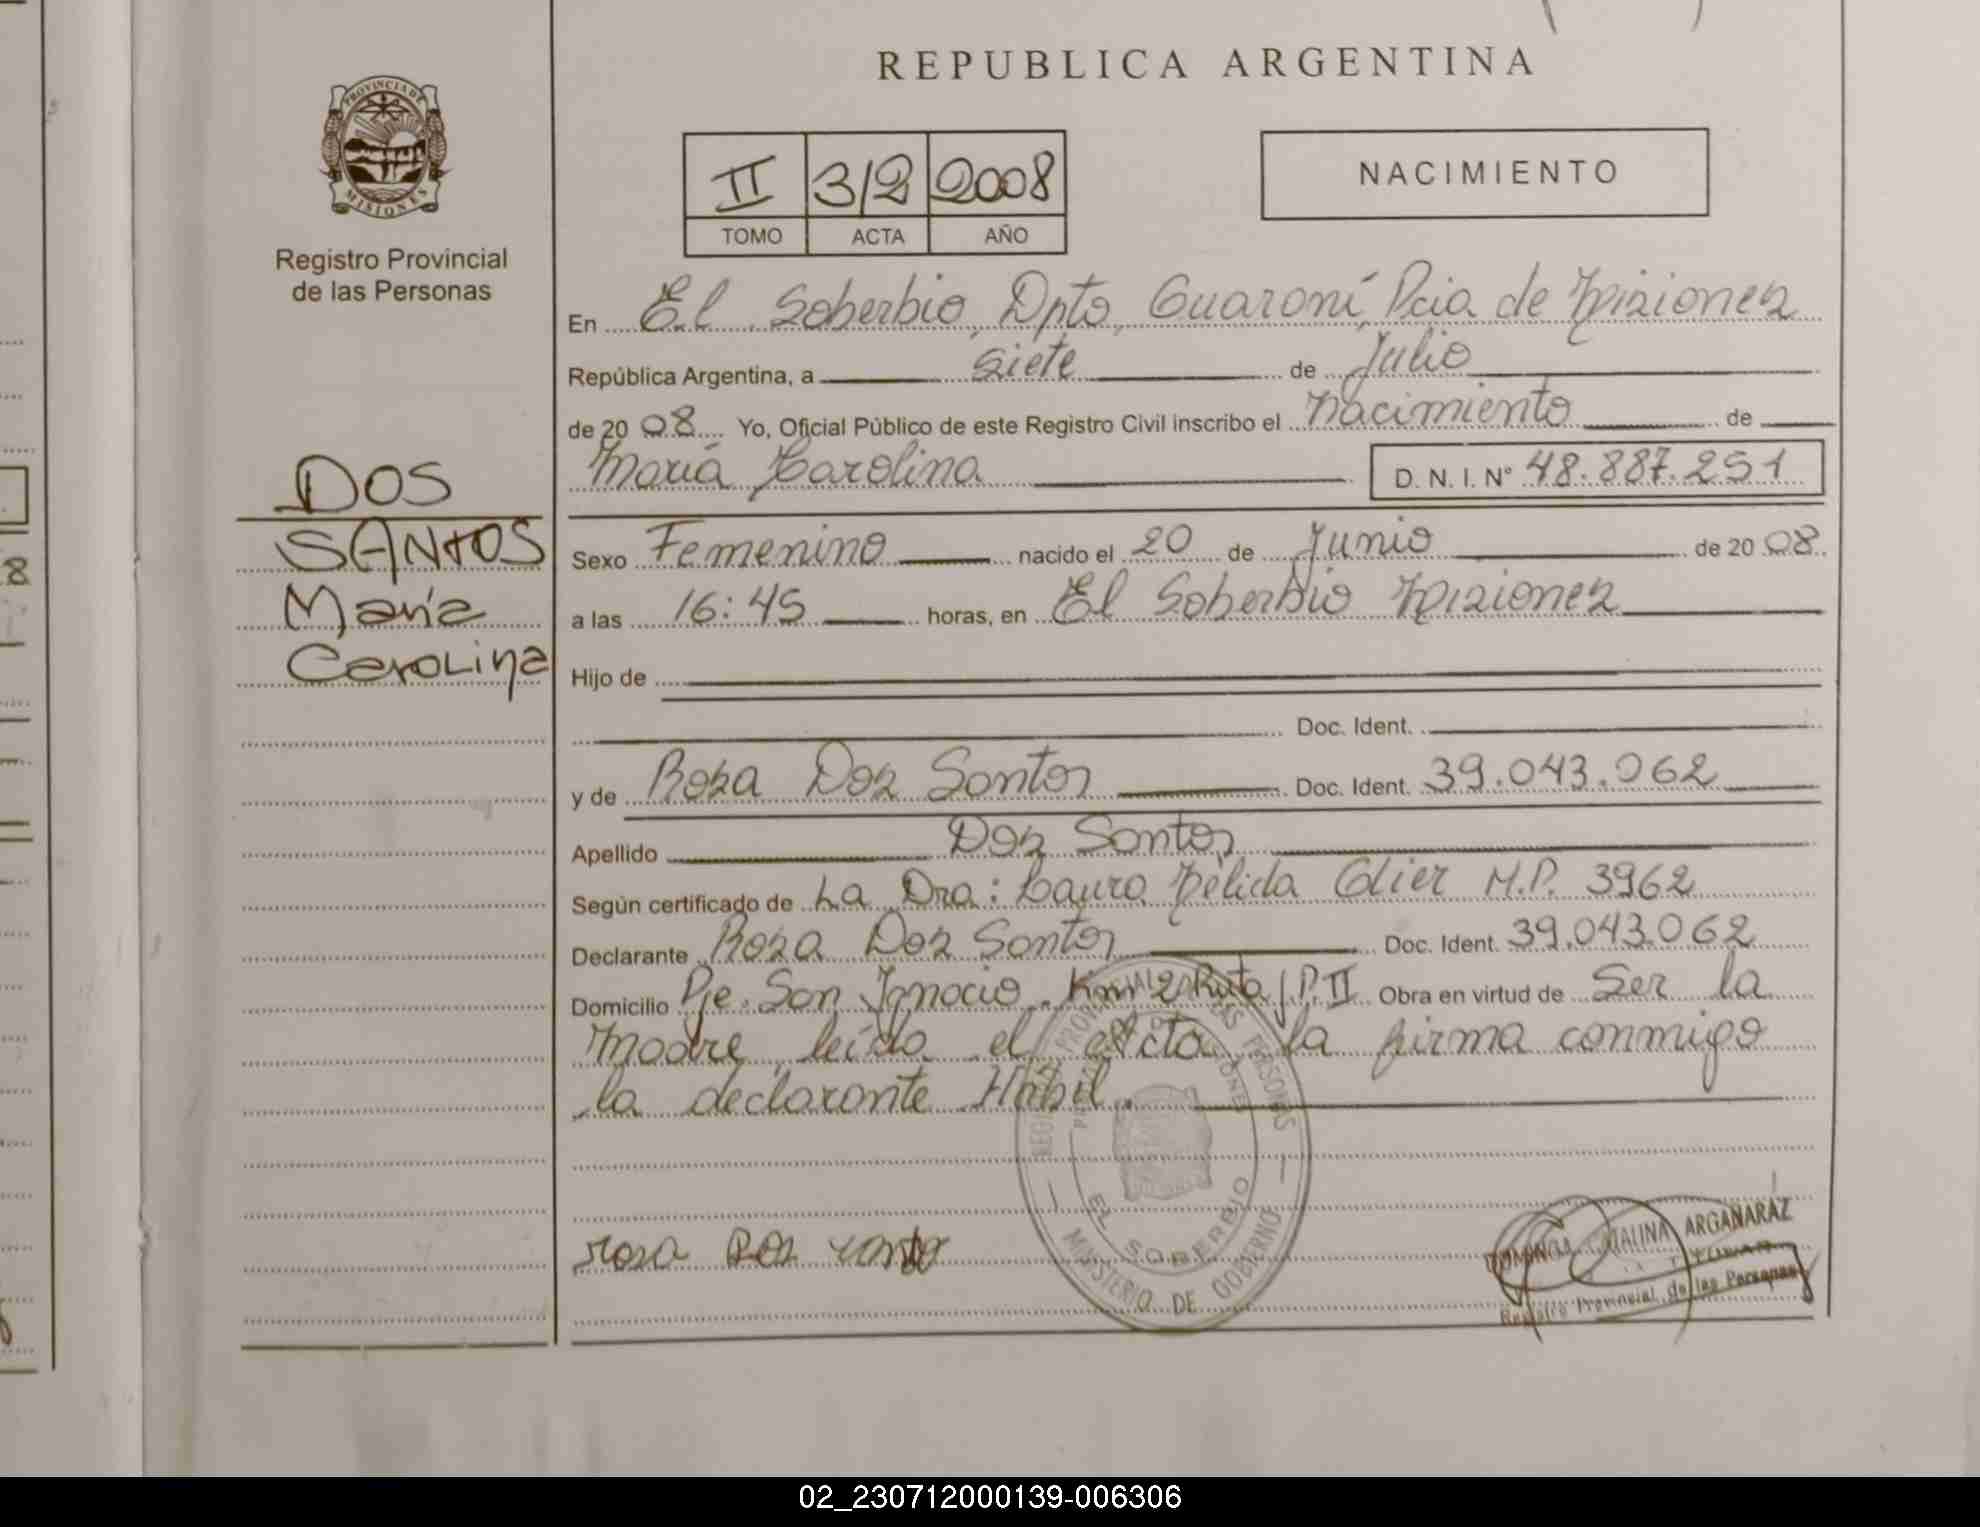 REPUBLICA ARGENTINA
PROVINCIA DE
MISIONES
Registro Provincial
de las Personas
II 312 2008
TOMO ACTA AÑO
NACIMIENTO
En El Soberbio, Dpto, Guaraní, Pcia de Misiones
República Argentina, a siete de Julio
de 2008 Yo, Oficial Público de este Registro Civil inscribo el Nacimiento de
María Carolina D. N. I. Nº 48.887.251
DOS
SANTOS
María
Carolina
Sexo Femenino nacido el 20 de Junio de 2008
a las 16:45 horas, en El Soberbio Misiones
Hijo de
Doc. Ident.
y de Rosa Dos Santos Doc. Ident. 39.043.062
Apellido Dos Santos
Según certificado de La Dra: Laura Nélida Glier M.P. 3962
Declarante Rosa Dos Santos Doc. Ident. 39.043.062
Domicilio Pje. San Ignacio, Km 2 Ruta P. II Obra en virtud de Ser la
Madre, leída el Acta, la firma conmigo
la declarante Hábil.
REGISTRO PROVINCIAL DE LAS PERSONAS
EL SOBERBIO
MINISTERIO DE GOBIERNO
rosa Dos santos
DOMINGA CATALINA ARGAÑARAZ
TITULAR
Registro Provincial de las Personas
8
02_230712000139-006306